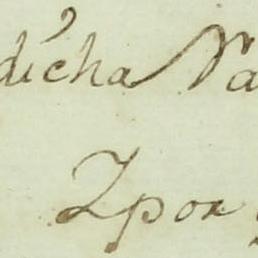 dicha Va
Zpor